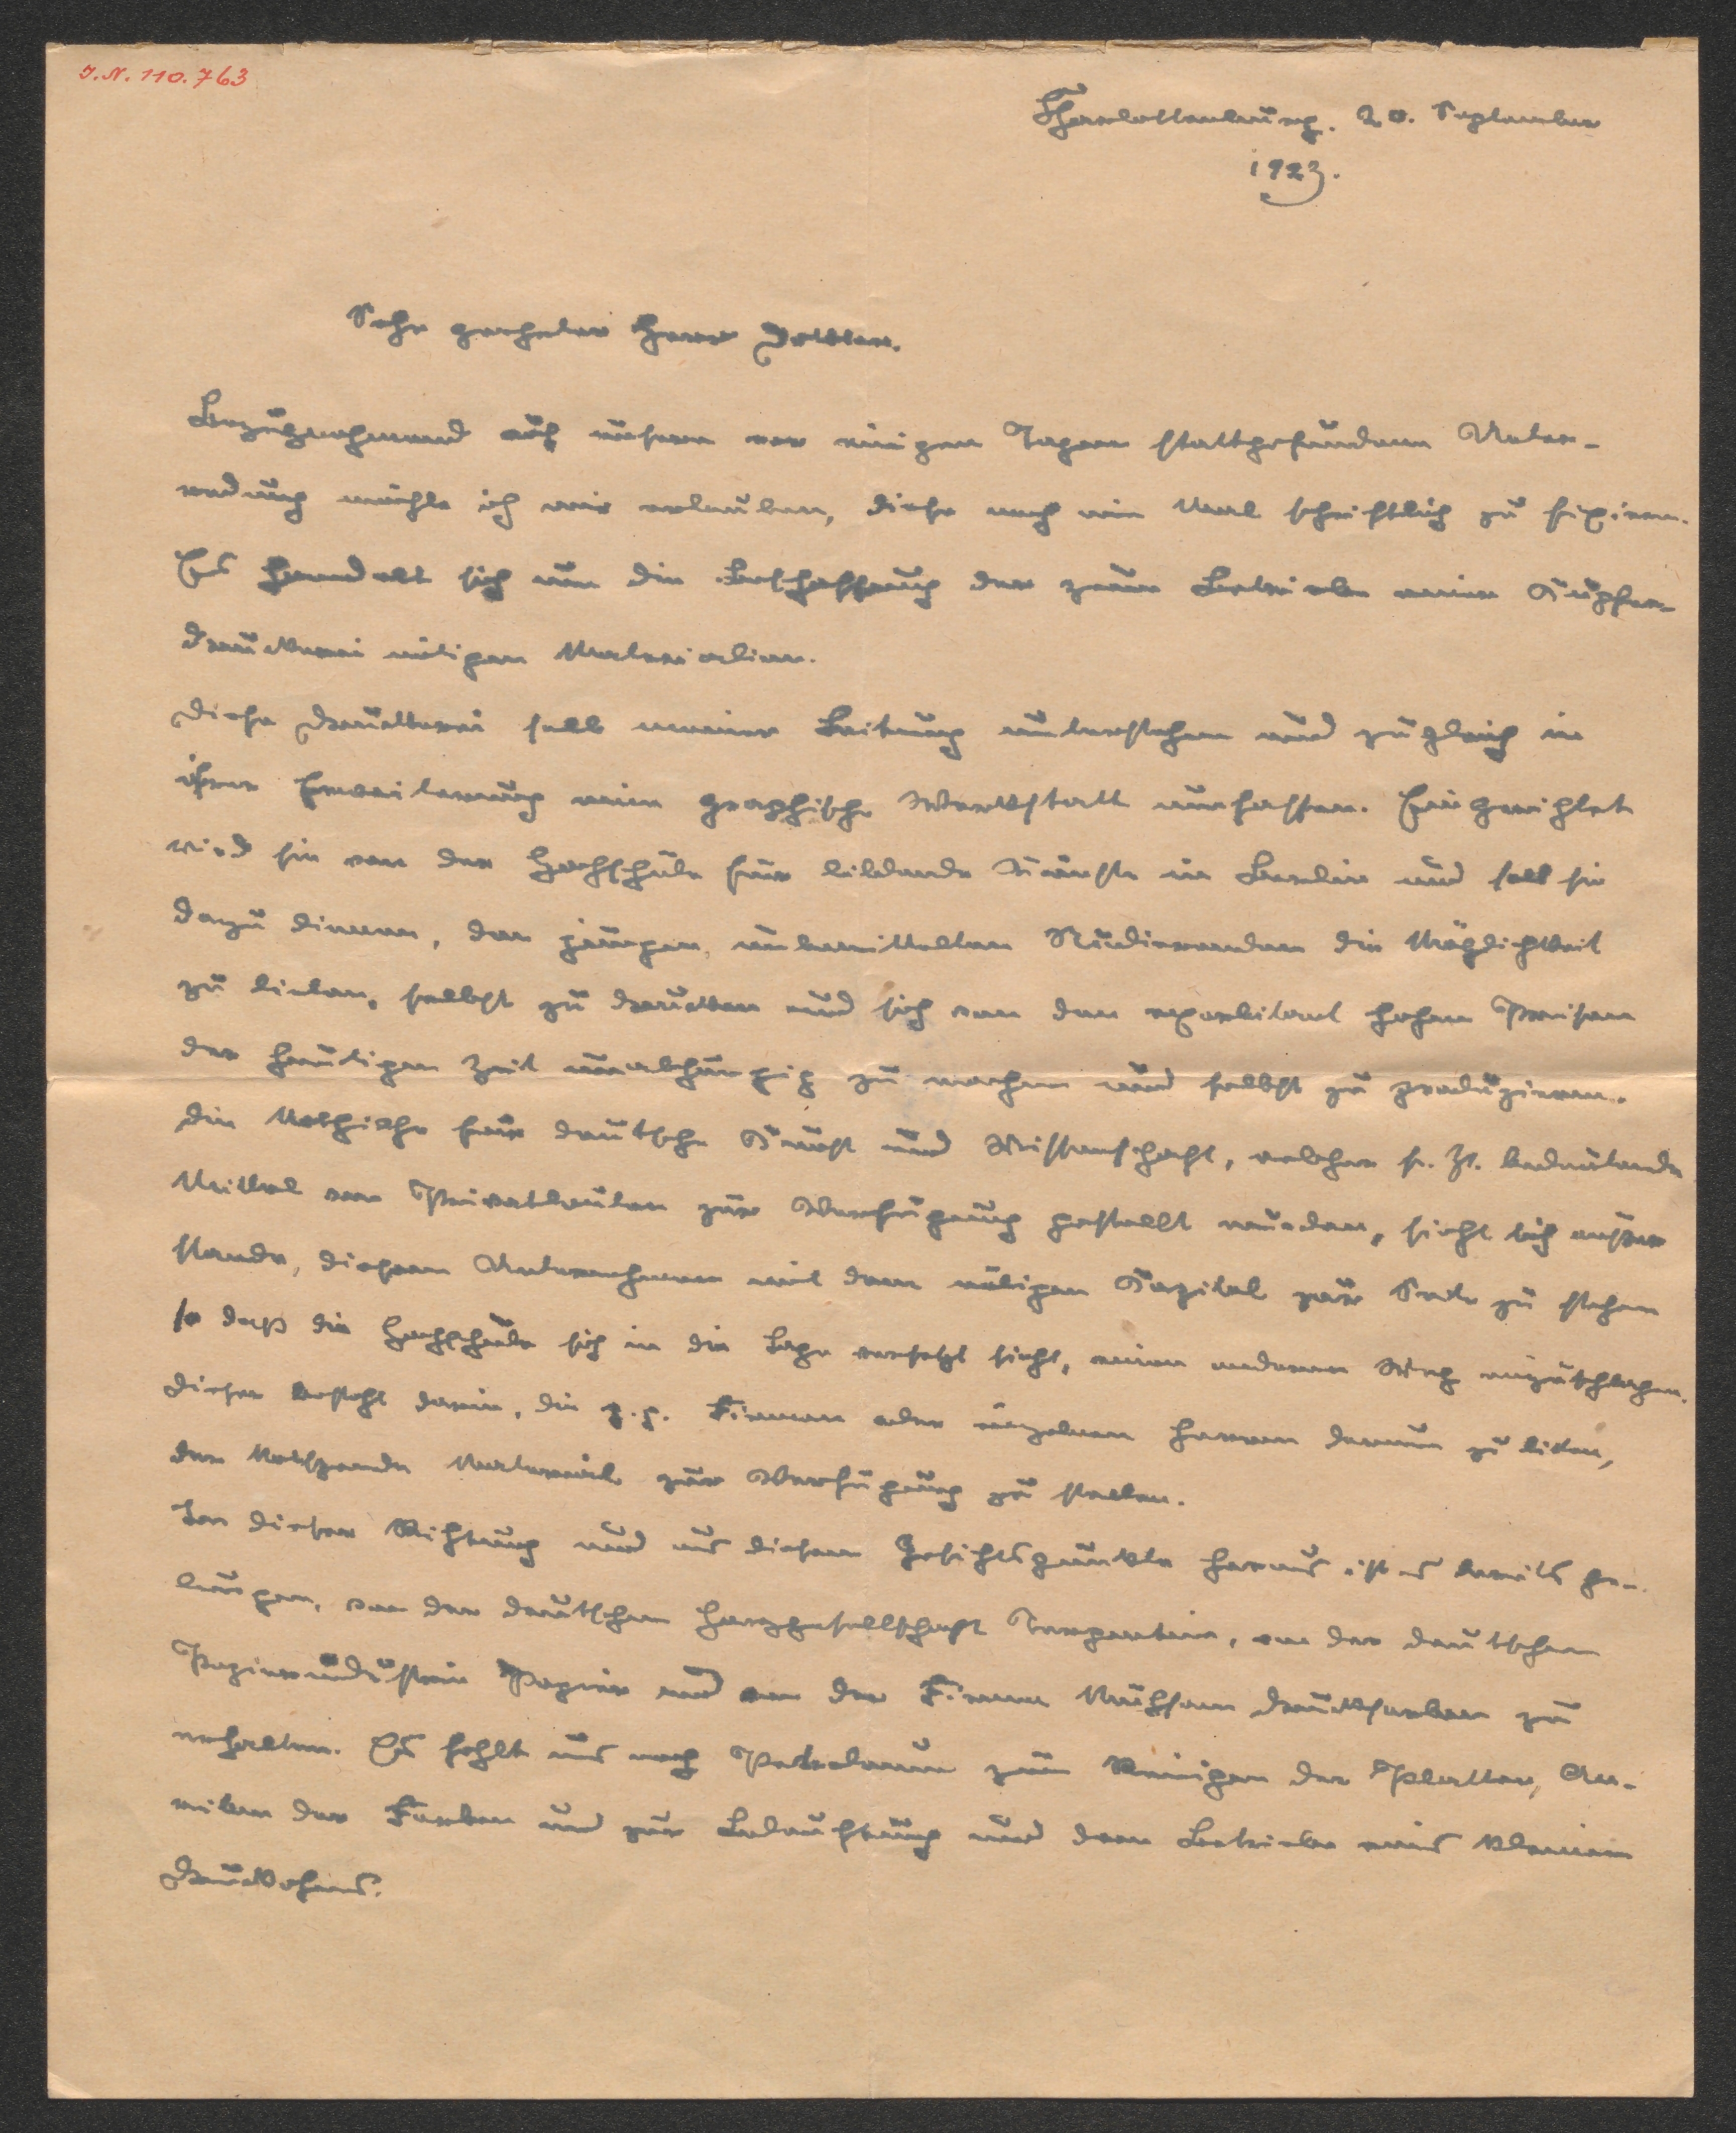 J.N. 110.763
Charlottenburg. 20. September
1923.
Sehr geehrter Herr Doktor.
Bezugnehmend auf unsere vor einigen Tagen stattgefundene Unter-
redung möchte ich mir erlauben, diese noch ein Mal schriftlich zu fixieren.
Es handelt sich um die Beschaffung der zum Betriebe einer Kupfer-
druckerei nötigen Materialien.
Diese Druckerei soll meiner Leitung unterstehen und zugleich in
ihrer Erweiterung eine graphische Werkstatt umfassen. Eingerichtet
wird sie von der Hochschule für bildende Künste in Berlin und soll sie
dazu dienen, den jungen, unbemittelten Studierenden die Möglichkeit
zu bieten, selbst zu drucken und sich von den exorbitant hohen Preisen
der heutigen Zeit unabhängig zu machen und selbst zu produzieren.
Die Nothilfe für deutsche Kunst und Wissenschaft, welcher s. Zt. bedeutende
Mittel von Privatleuten zur Verfügung gestellt wurden, sieht sich außer
stande, diesem Unternehmen mit dem nötigen Kapital zur Seite zu stehen
so daß die Hochschule sich in die Lage versetzt sieht, einen anderen Weg einzuschlagen.
Dieser besteht darin, die g. g. Firmen oder einzelnen Herren darum zu bitten,
der Notspende Material zur Verfügung zu stellen.
In dieser Richtung und aus diesem Gesichtspunkte heraus ist es bereits ge-
lungen, von der deutschen Harzgesellschaft Terpentin, von der deutschen
Papierindustrie Papier und von der Firma Mühsam Druckfarben zu
erhalten. Es fehlt uns noch Petroleum zum Reinigen der Platten, An-
reiben der Farben und zur Beleuchtung und dem Betriebe eines kleinen
Druckofens.